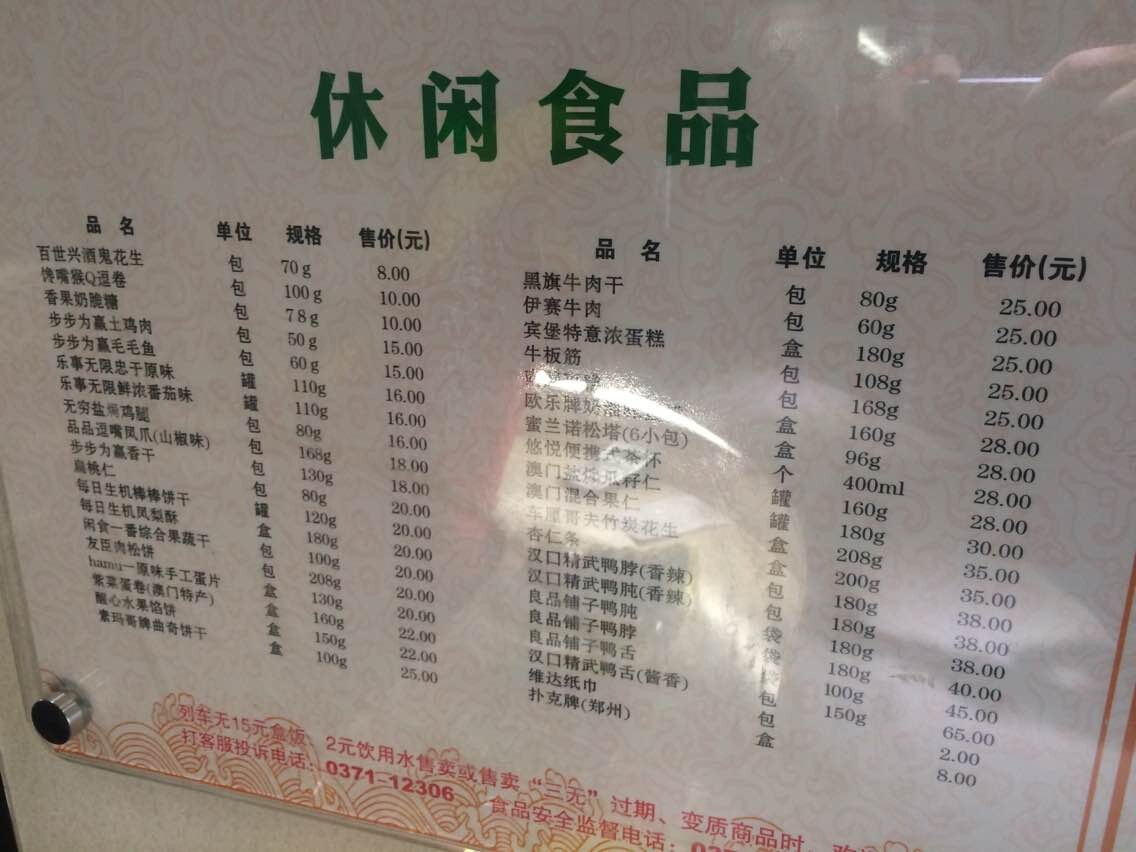 休闲食品
品名 单位 规格 售价(元)
百世兴酒鬼花生 包 70g 8.00
馋嘴猴Q逗卷 包 100g 10.00
香果奶脆糖 包 78g 10.00
步步为赢土鸡肉 包 50g 15.00
步步为赢毛毛鱼 包 60g 15.00
乐事无限忠于原味 罐 110g 16.00
乐事无限鲜浓番茄味 罐 110g 16.00
无穷盐焗鸡腿 包 80g 16.00
品品逗嘴凤爪(山椒味) 包 168g 18.00
步步为赢香干 包 130g 18.00
扁桃仁 包 80g 20.00
每日生机棒棒饼干 罐 120g 20.00
每日生机凤梨酥 盒 180g 20.00
闲食一番综合果蔬干 包 100g 20.00
友臣肉松饼 包 208g 20.00
hamu一原味手工蛋片 盒 130g 20.00
紫菜蛋卷(澳门特产) 盒 160g 22.00
醒心水果馅饼 盒 150g 22.00
素玛哥牌曲奇饼干 盒 100g 25.00
品名 单位 规格 售价(元)
黑旗牛肉干 包 80g 25.00
伊赛牛肉 包 60g 25.00
宾堡特意浓蛋糕 盒 180g 25.00
牛板筋 包 108g 25.00
包 168g 25.00
欧乐牌奶 盒 160g 28.00
蜜兰诺松塔(6小包) 盒 96g 28.00
悠悦便携式茶杯 个 400ml 28.00
澳门盐焗瓜籽仁 罐 160g 28.00
澳门混合果仁 罐 180g 30.00
车厘哥夫竹炭花生 盒 208g 35.00
杏仁条 盒 200g 35.00
汉口精武鸭脖(香辣) 包 180g 38.00
汉口精武鸭肫(香辣) 包 180g 38.00
良品铺子鸭肫 袋 180g 38.00
良品铺子鸭脖 袋 180g 40.00
良品铺子鸭舌 袋 100g 45.00
汉口精武鸭舌(酱香) 包 150g 65.00
维达纸巾 包 2.00
扑克牌(郑州) 盒 8.00
列车无15元盒饭、2元饮用水售卖或售卖“三无”过期、变质商品时，欢
打客服投诉电话：0371-12306 食品安全监督电话：